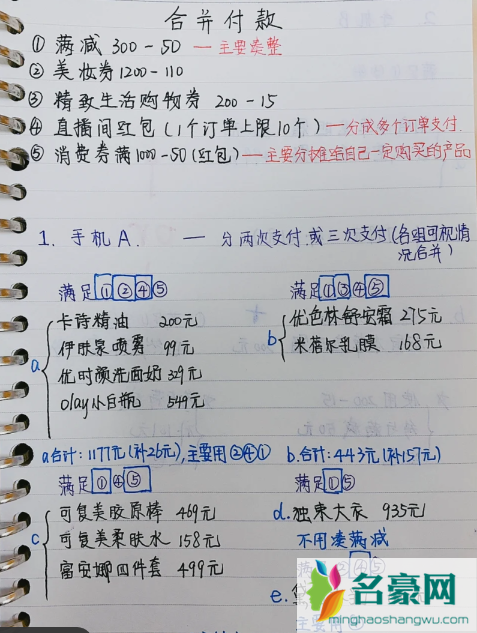 合并付款
① 满减 300-50 —主要凑整
② 美妆券1200-110
③ 精致生活购物券 200-15
④ 直播间红包(1个订单上限10个)—分成多个订单支付.
⑤ 消费券满1000-50(红包)—主要分摊给自己一定购买的产品
1. 手机A. — 分两次支付.或三次支付(各组可视情况合并)
满足①②④⑤
a
卡诗精油 200元
伊肤泉喷雾 99元
优时颜洗面奶 329元
olay小白瓶 549元
满足①③④⑤
b
优色林舒安霜 275元
米蓓尔乳膜 168元
a.合计:1177元(补26元),主要用②④①
b.合计:443元(补157元)
满足①④⑤
c
可复美胶原棒 469元
可复美柔肤水 158元
富安娜四件套 499元
满足①⑤
d.独束大衣 935元
不用凑满减
e.
名豪网
minghaoshangwu.com